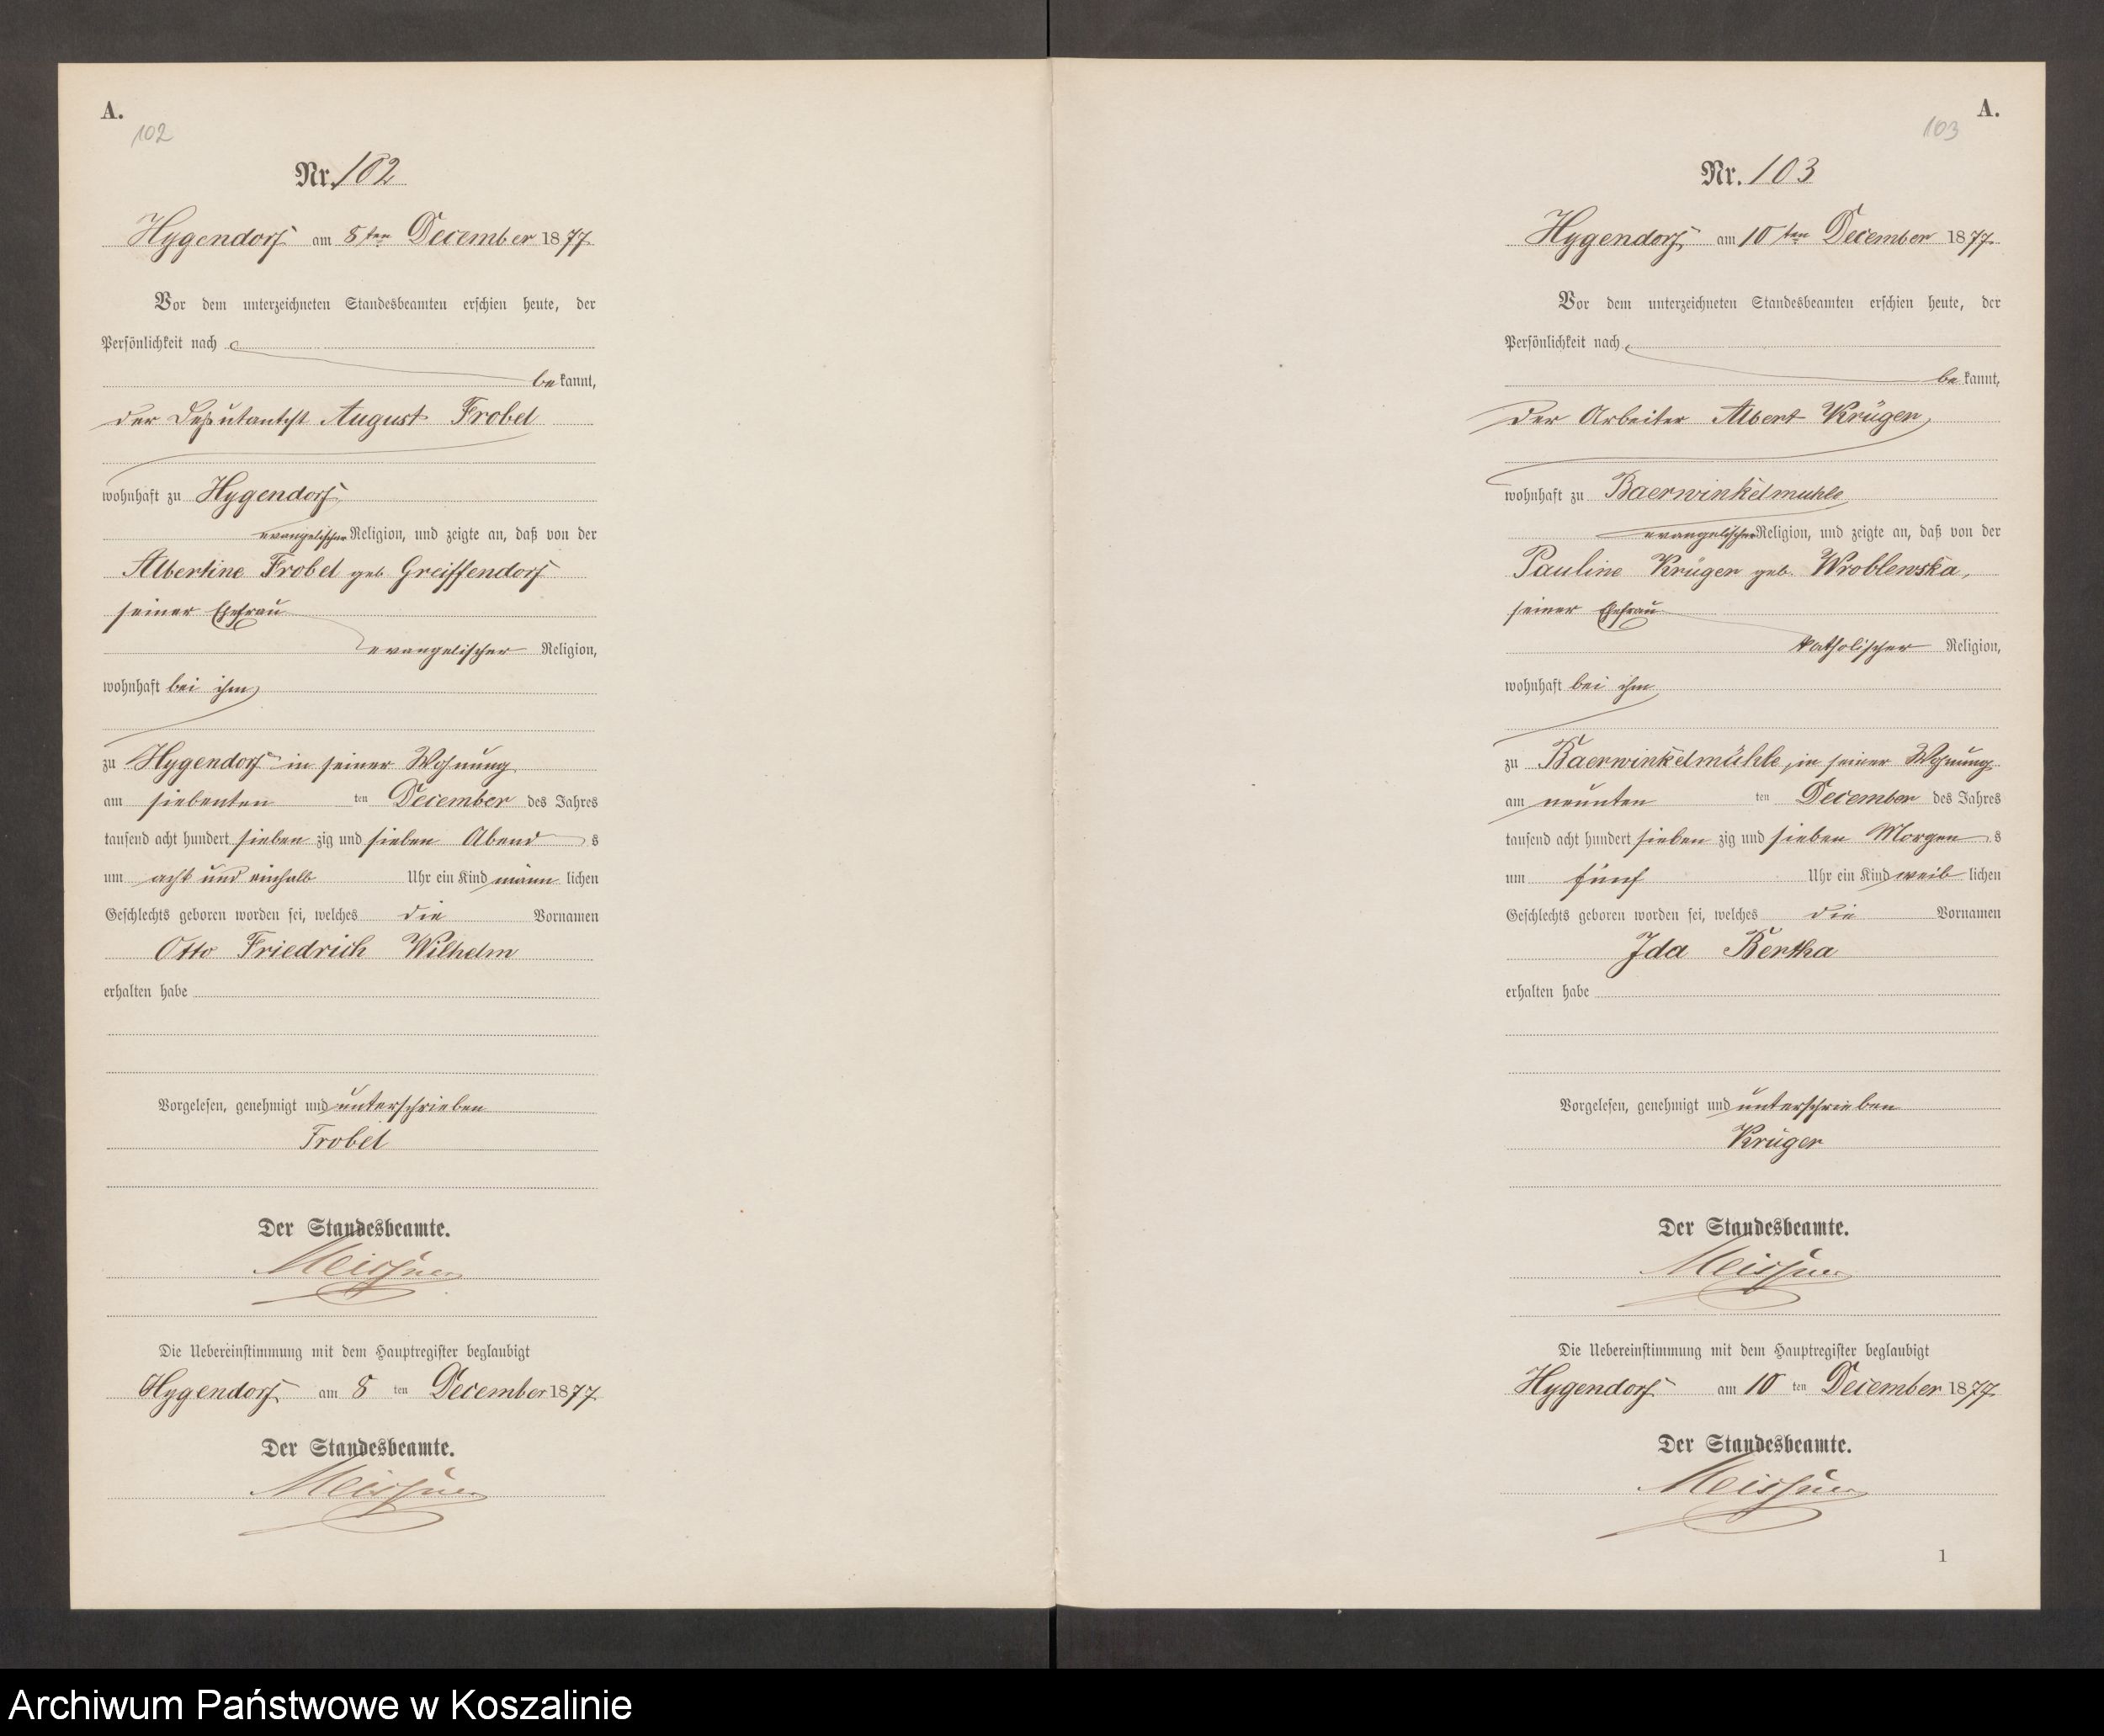 A.
102
Nr. 102
Hygendorf am 8ten December 1877
Vor dem unterzeichneten Standesbeamten erschien heute, der
Persönlichkeit nach
bekannt,
der Deputantist August Frobel
wohnhaft zu Hygendorf
evangelischer Religion, und zeigte an, daß von der
Albertine Frobel geb Greiffendorf
seiner Ehefrau
evangelischer Religion,
wohnhaft bei ihm
zu Hygendorf in seiner Wohnung
am siebenten ten December des Jahres
tausend acht hundert sieben zig und sieben Abend s
um acht und einhalb Uhr ein Kind männ lichen
Geschlechts geboren worden sei, welches die Vornamen
Otto Friedrich Wilhelm
erhalten habe
Vorgelesen, genehmigt und unterschrieben
Frobel
Der Standesbeamte.
Meissner
Die Uebereinstimmung mit dem Hauptregister beglaubigt
Hygendorf am 8 ten December 1877
Der Standesbeamte.
Meissner
A.
103
Nr. 103
Hygendorf am 10ten December 1877
Vor dem unterzeichneten Standesbeamten erschien heute, der
Persönlichkeit nach
bekannt,
Der Arbeiter Albert Krüger,
wohnhaft zu Baerwinkelmuhle
evangelischer Religion, und zeigte an, daß von der
Pauline Krüger geb. Wroblewska,
seiner Ehefrau
katholischer Religion,
wohnhaft bei ihm
zu Baerwinkelmühle, in seiner Wohnung
am neunten ten December des Jahres
tausend acht hundert sieben zig und sieben Morgen s
um fünf Uhr ein Kind weib lichen
Geschlechts geboren worden sei, welches die Vornamen
Ida Bertha
erhalten habe
Vorgelesen, genehmigt und unterschrieben
Krüger
Der Standesbeamte.
Meissner
Die Uebereinstimmung mit dem Hauptregister beglaubigt
Hygendorf am 10 ten December 1877
Der Standesbeamte.
Meissner
1
Archiwum Państwowe w Koszalinie